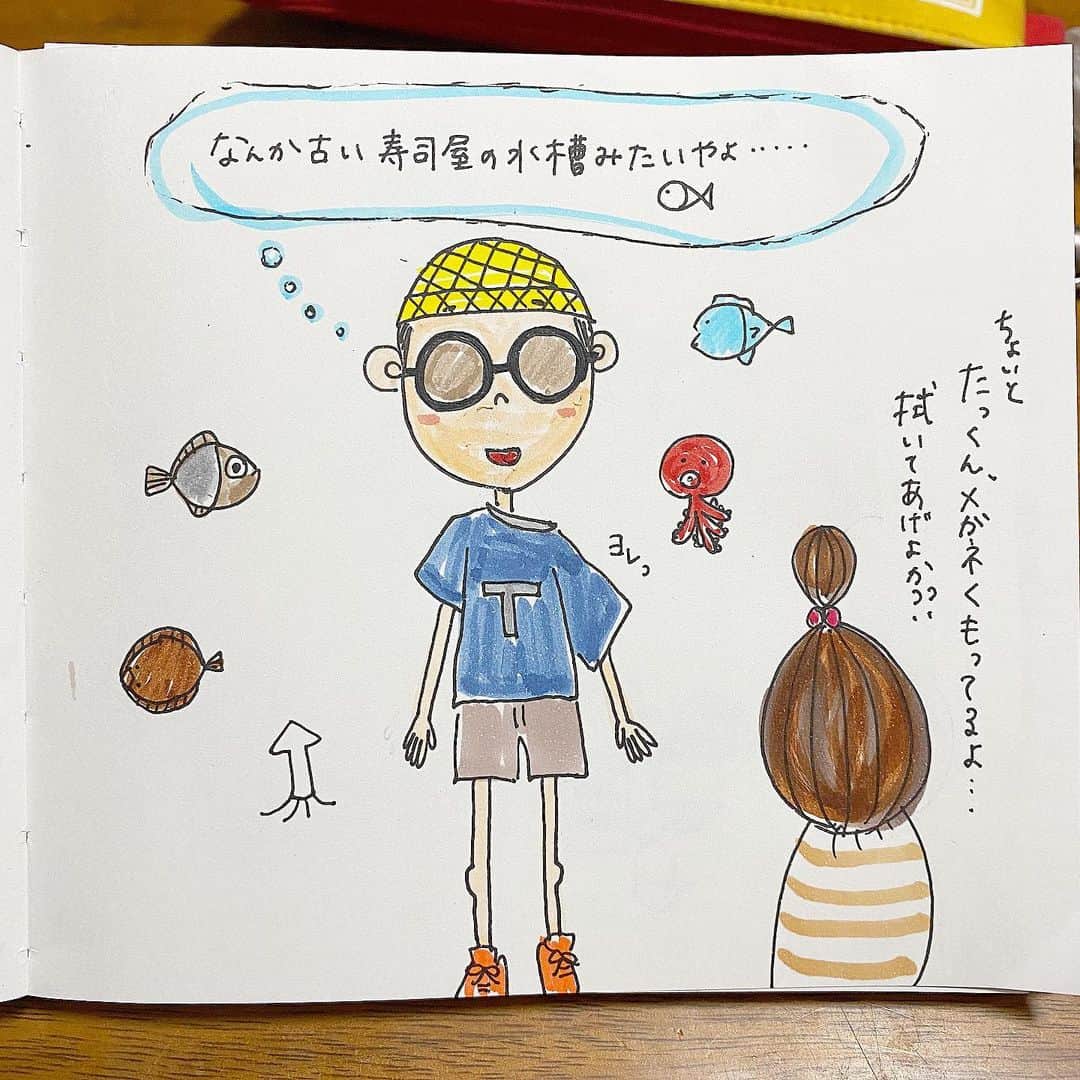 なんか古い寿司屋の水槽みたいやよ・・・・・
T
ヨレっ
ちょいと
たっくん、メガネくもってるよ・・・・
拭いてあげよか??